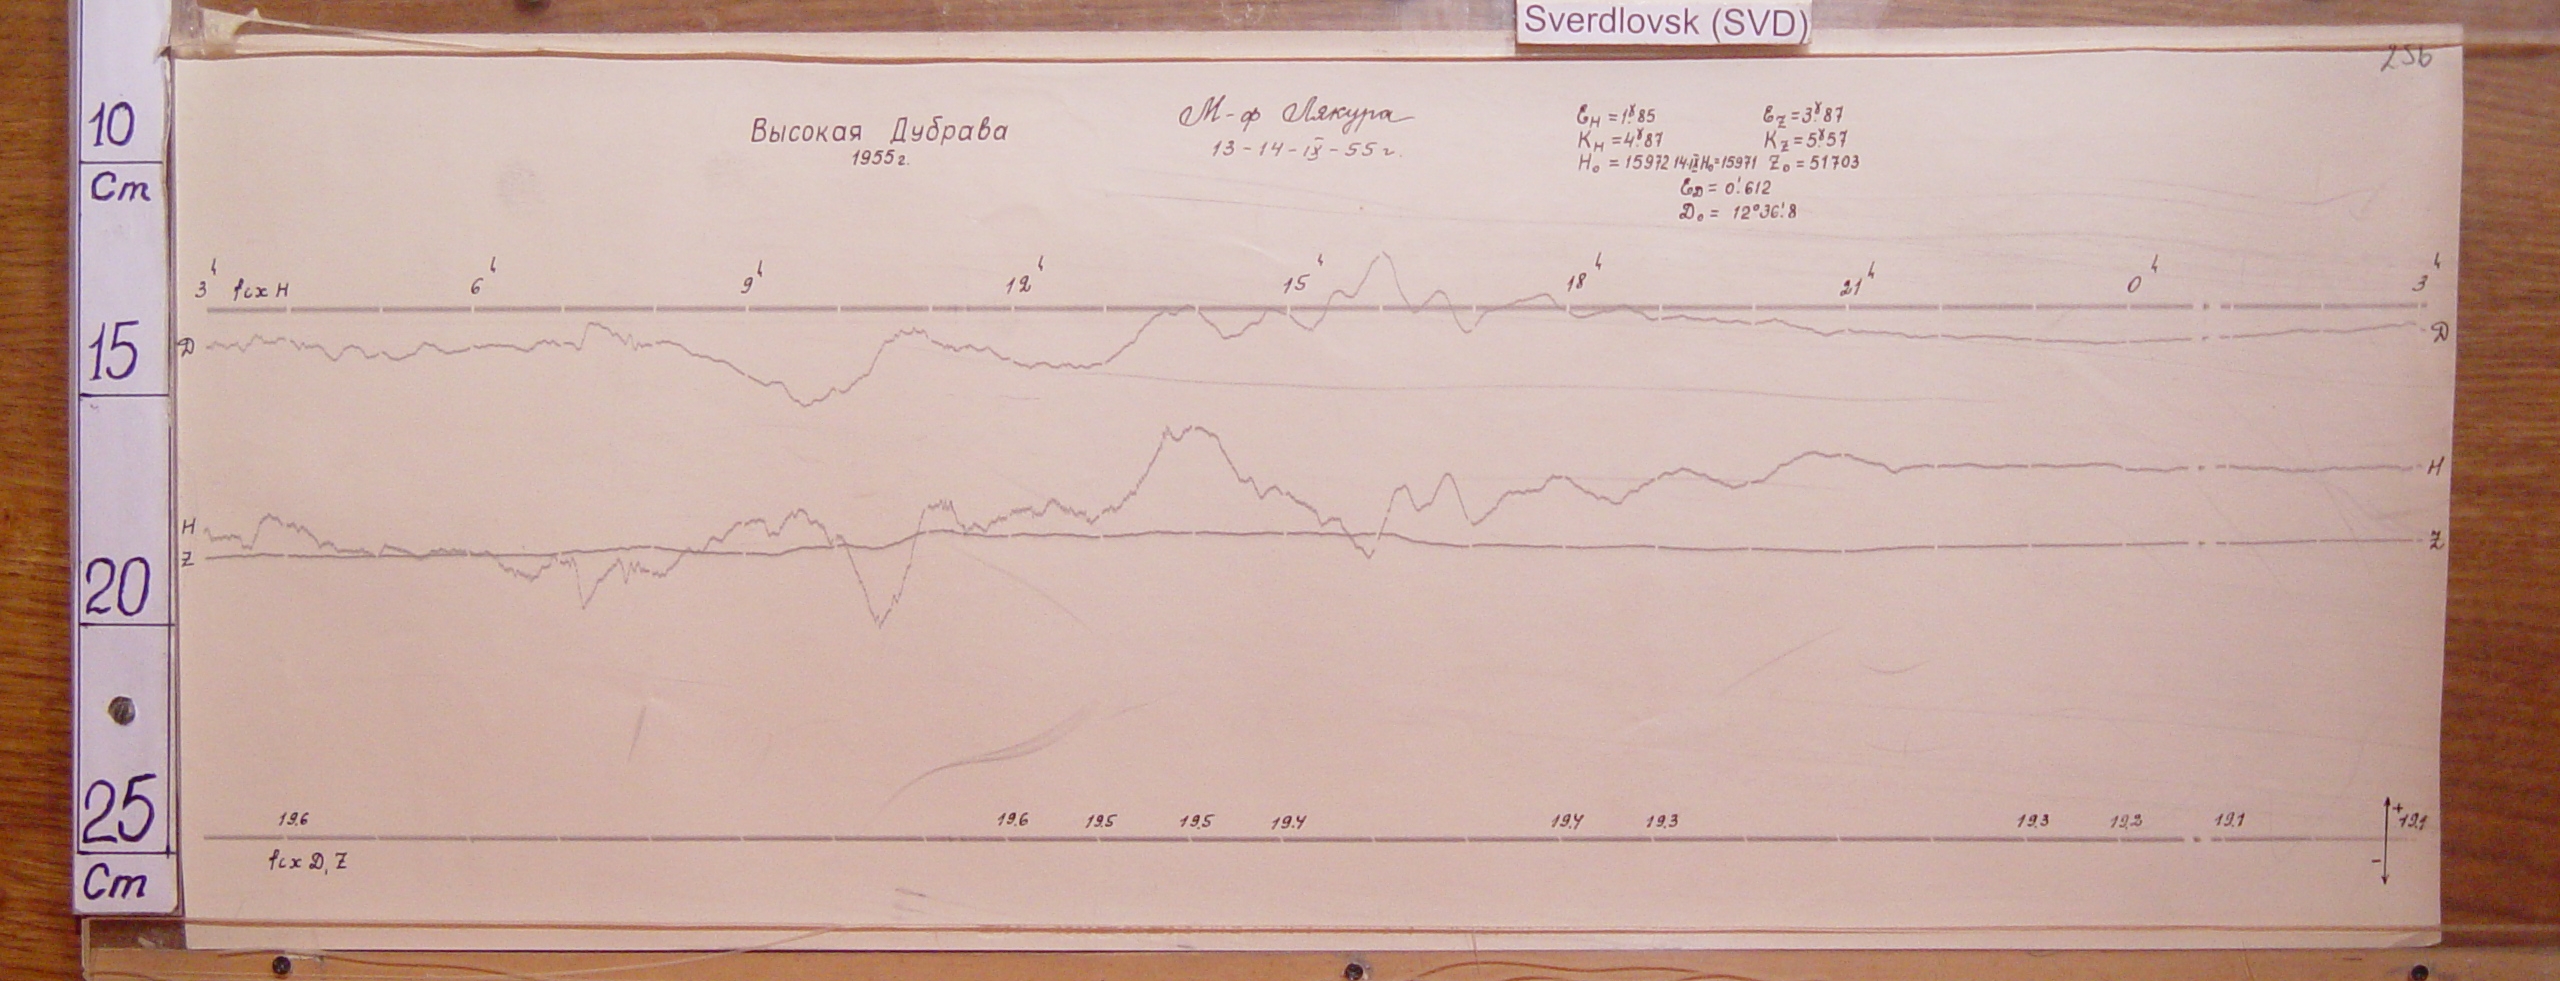 Sverdlovsk (SVD)
256
10
Cm
15
20
25
Cm
Высокая Дубрава
1955 г.
М-ф Лякура
13-14-IX-55 г.
Ɛ_H = 1ˠ.85 Ɛ_Z = 3ˠ.87
K_H = 4ˠ.87 K_Z = 5ˠ.57
H₀ = 15972 14.IX H₀=15971 Z₀ = 51703
Ɛ_D = 0'.612
D₀ = 12°36'.8
3ʰ 6ʰ 9ʰ 12ʰ 15ʰ 18ʰ 21ʰ 0ʰ 3ʰ
H
D D
H H
Z Z
19.6 19.6 19.5 19.5 19.4 19.4 19.3 19.3 19.2 19.1 19.1
+
-
D, Z